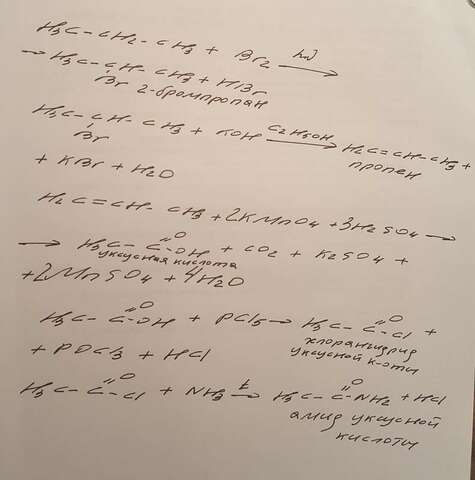 H₃C-CH₂-CH₃ + Br₂ hν→
→ H₃C-CH-CH₃ + HBr
Br 2-бромпропан
H₃C-CH-CH₃ + KOH C₂H₅OH→ H₂C=CH-CH₃ +
Br пропен
+ KBr + H₂O
H₂C=CH-CH₃ + 2KMnO₄ + 3H₂SO₄ →
→ H₃C-C=O-OH + CO₂ + K₂SO₄ +
уксусная кислота
+ 2MnSO₄ + 4H₂O
H₃C-C=O-OH + PCl₅ → H₃C-C=O-Cl +
хлорангидрид
уксусной к-оты
+ POCl₃ + HCl
H₃C-C=O-Cl + NH₃ t→ H₃C-C=O-NH₂ + HCl
амид уксусной
кислоты